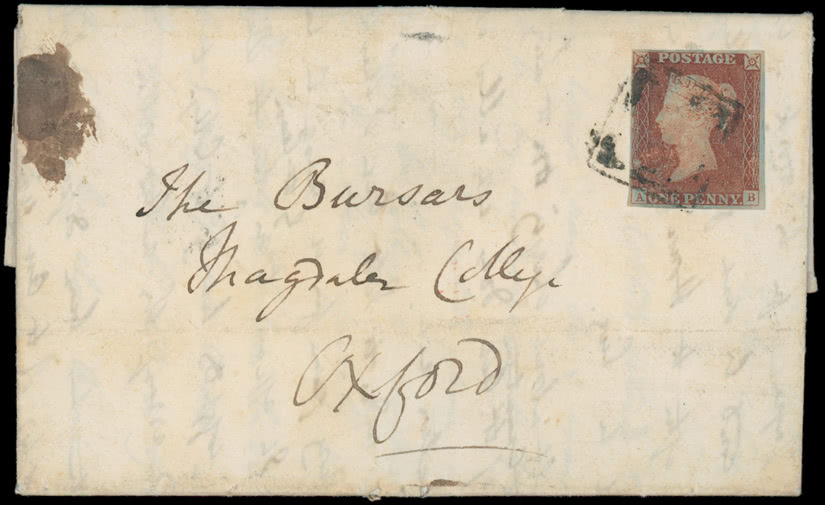 POSTAGE
A ONE PENNY B
The Bursars
Magdalen College
Oxford